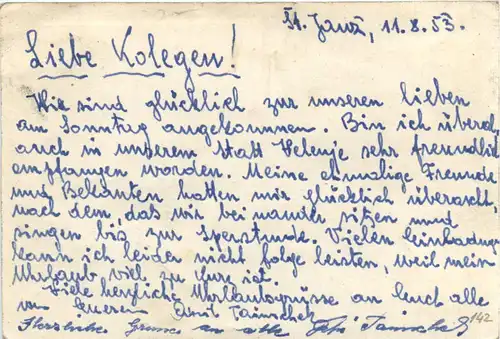 St. Janž, 11.8.53.
Liebe Kolegen!
Wir sind glücklich zur unseren lieben
am Sonntag angekommen. Bin ich überal
auch in unserem Statt Velenje sehr freundlich
empfangen worden. Meine ehmalige Freunde
und Bekanten hatten mir glücklich überascht,
nach dem, daß wir bei nander sitzen und
singen bis zur Sperstunde. Vielen Einladung
kann ich leider nicht folge leisten, weil mein
Uhrlaub viel zu kurz ist.
Viele herzliche Uhrlaubsgrüsse an Euch alle
von Eueren
Herzliche Grüsse an alle
142